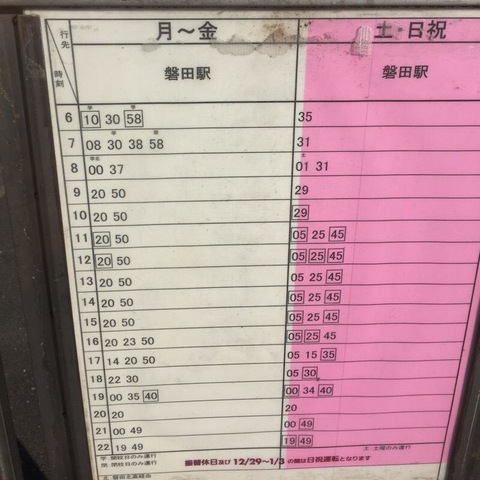 行先 月～金 土・日祝
時刻 磐田駅 磐田駅
学 学
6 10 30 58 35
学
7 08 30 38 58 31
土
8 00 37 01 31
9 20 50 29
10 20 50 29
11 20 50 05 25 45
12 20 50 05 25 45
13 20 50 05 25 45
14 20 50 05 25 45
15 20 50 05 25 45
16 20 23 50 05 25 45
17 14 20 50 05 15 35
18 22 30 05 30
19 00 35 40 00 34 40
20 20 20
21 00 49 00 49
22 19 49 19 49
学: 開校日のみ運行 土: 土曜のみ運行
閉: 閉校日のみ運行 振替休日及び 12/29～1/3 の間は日祝運転となります